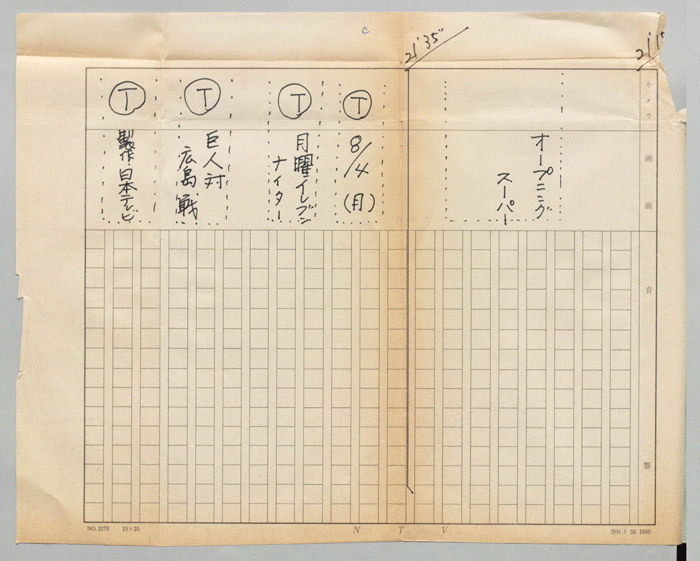 21'35"
カメラ
画面
音響
オープニング
スーパー
T
8/4(月)
T
月曜イレブン
ナイター
T
巨人対
広島戦
T
製作・日本テレビ
NO.2270 15×20
N T V